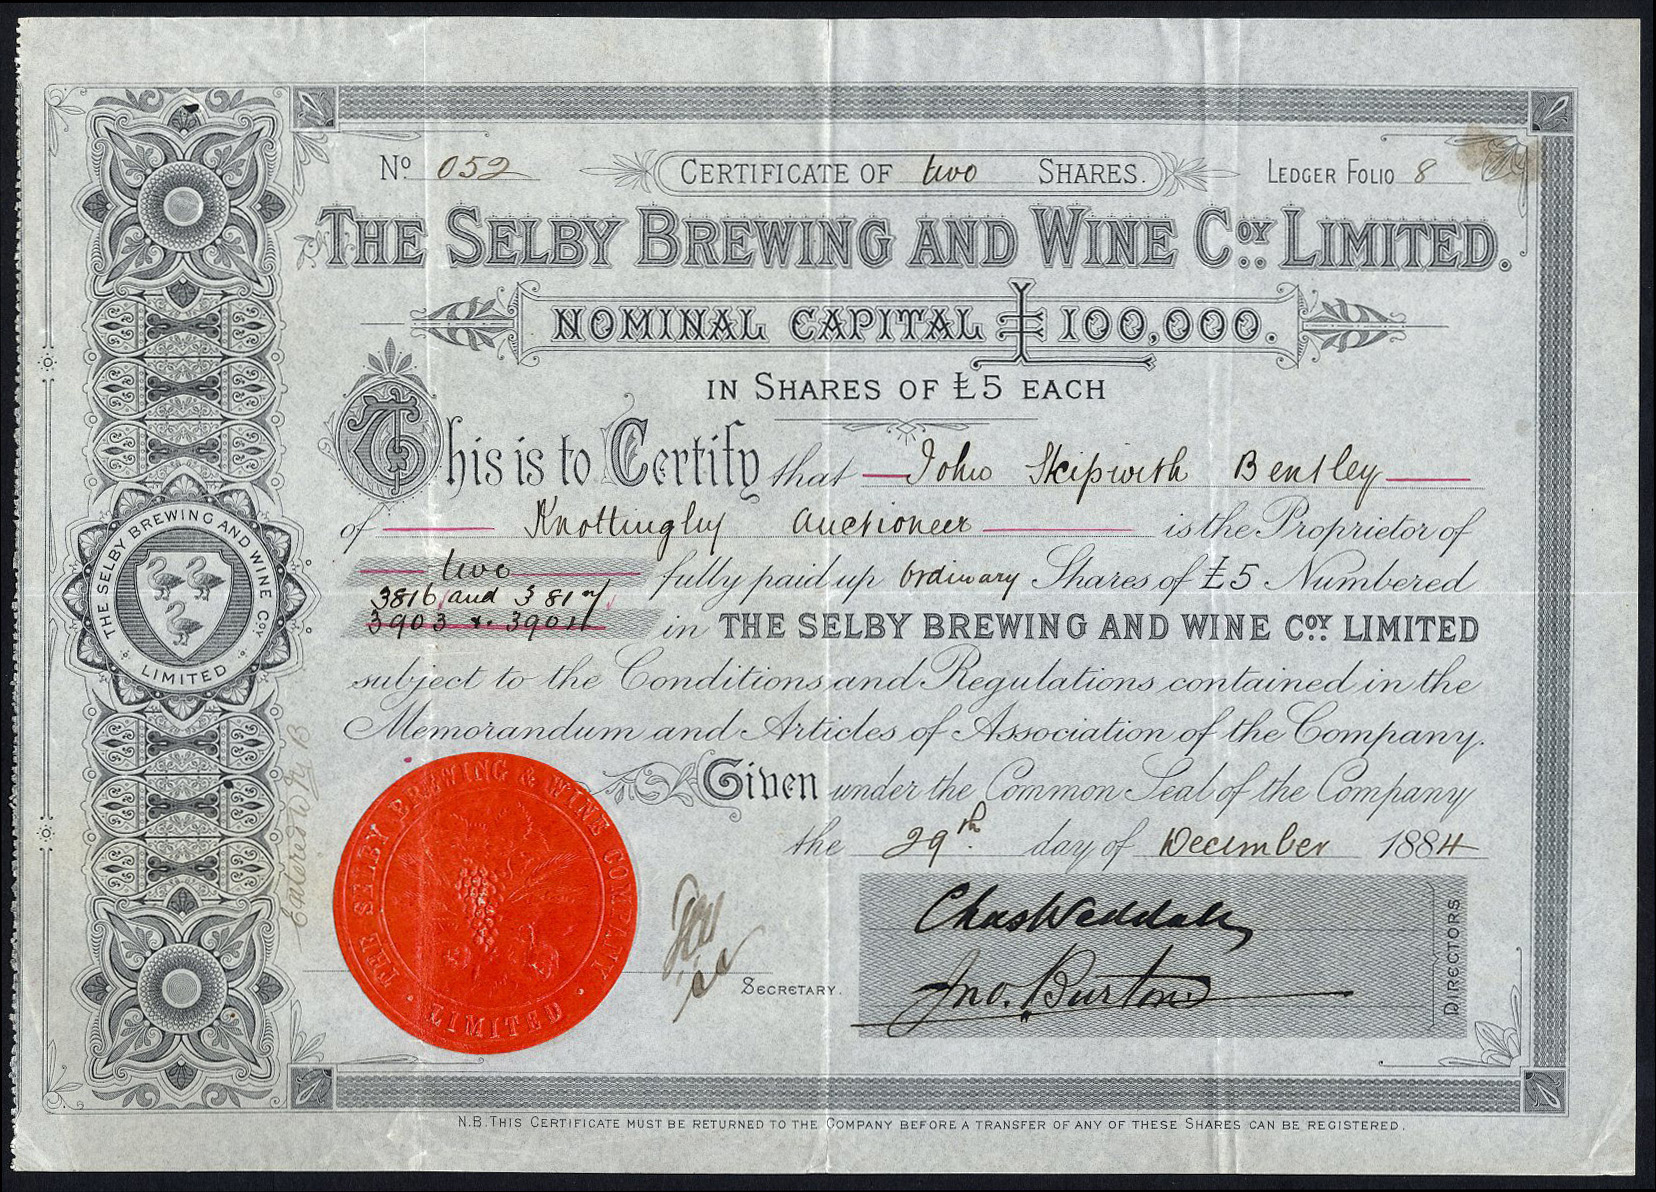 No 052 CERTIFICATE OF two SHARES. LEDGER FOLIO 8
THE SELBY BREWING AND WINE COY LIMITED.
NOMINAL CAPITAL £100,000.
IN SHARES OF £5 EACH
This is to Certify that John Skipwith Bentley
of Knottingley Auctioneer is the Proprietor of
two fully paid up Ordinary Shares of £5 Numbered
3816 and 3817
3903 & 3904 in THE SELBY BREWING AND WINE COY LIMITED
subject to the Conditions and Regulations contained in the
Memorandum and Articles of Association of the Company.
Given under the Common Seal of the Company
the 29th day of December 1884
Chas Weddall
Jno. Burton
DIRECTORS
SECRETARY.
THE SELBY BREWING & WINE COMPANY
LIMITED
THE SELBY BREWING AND WINE COY
LIMITED
N.B. THIS CERTIFICATE MUST BE RETURNED TO THE COMPANY BEFORE A TRANSFER OF ANY OF THESE SHARES CAN BE REGISTERED.